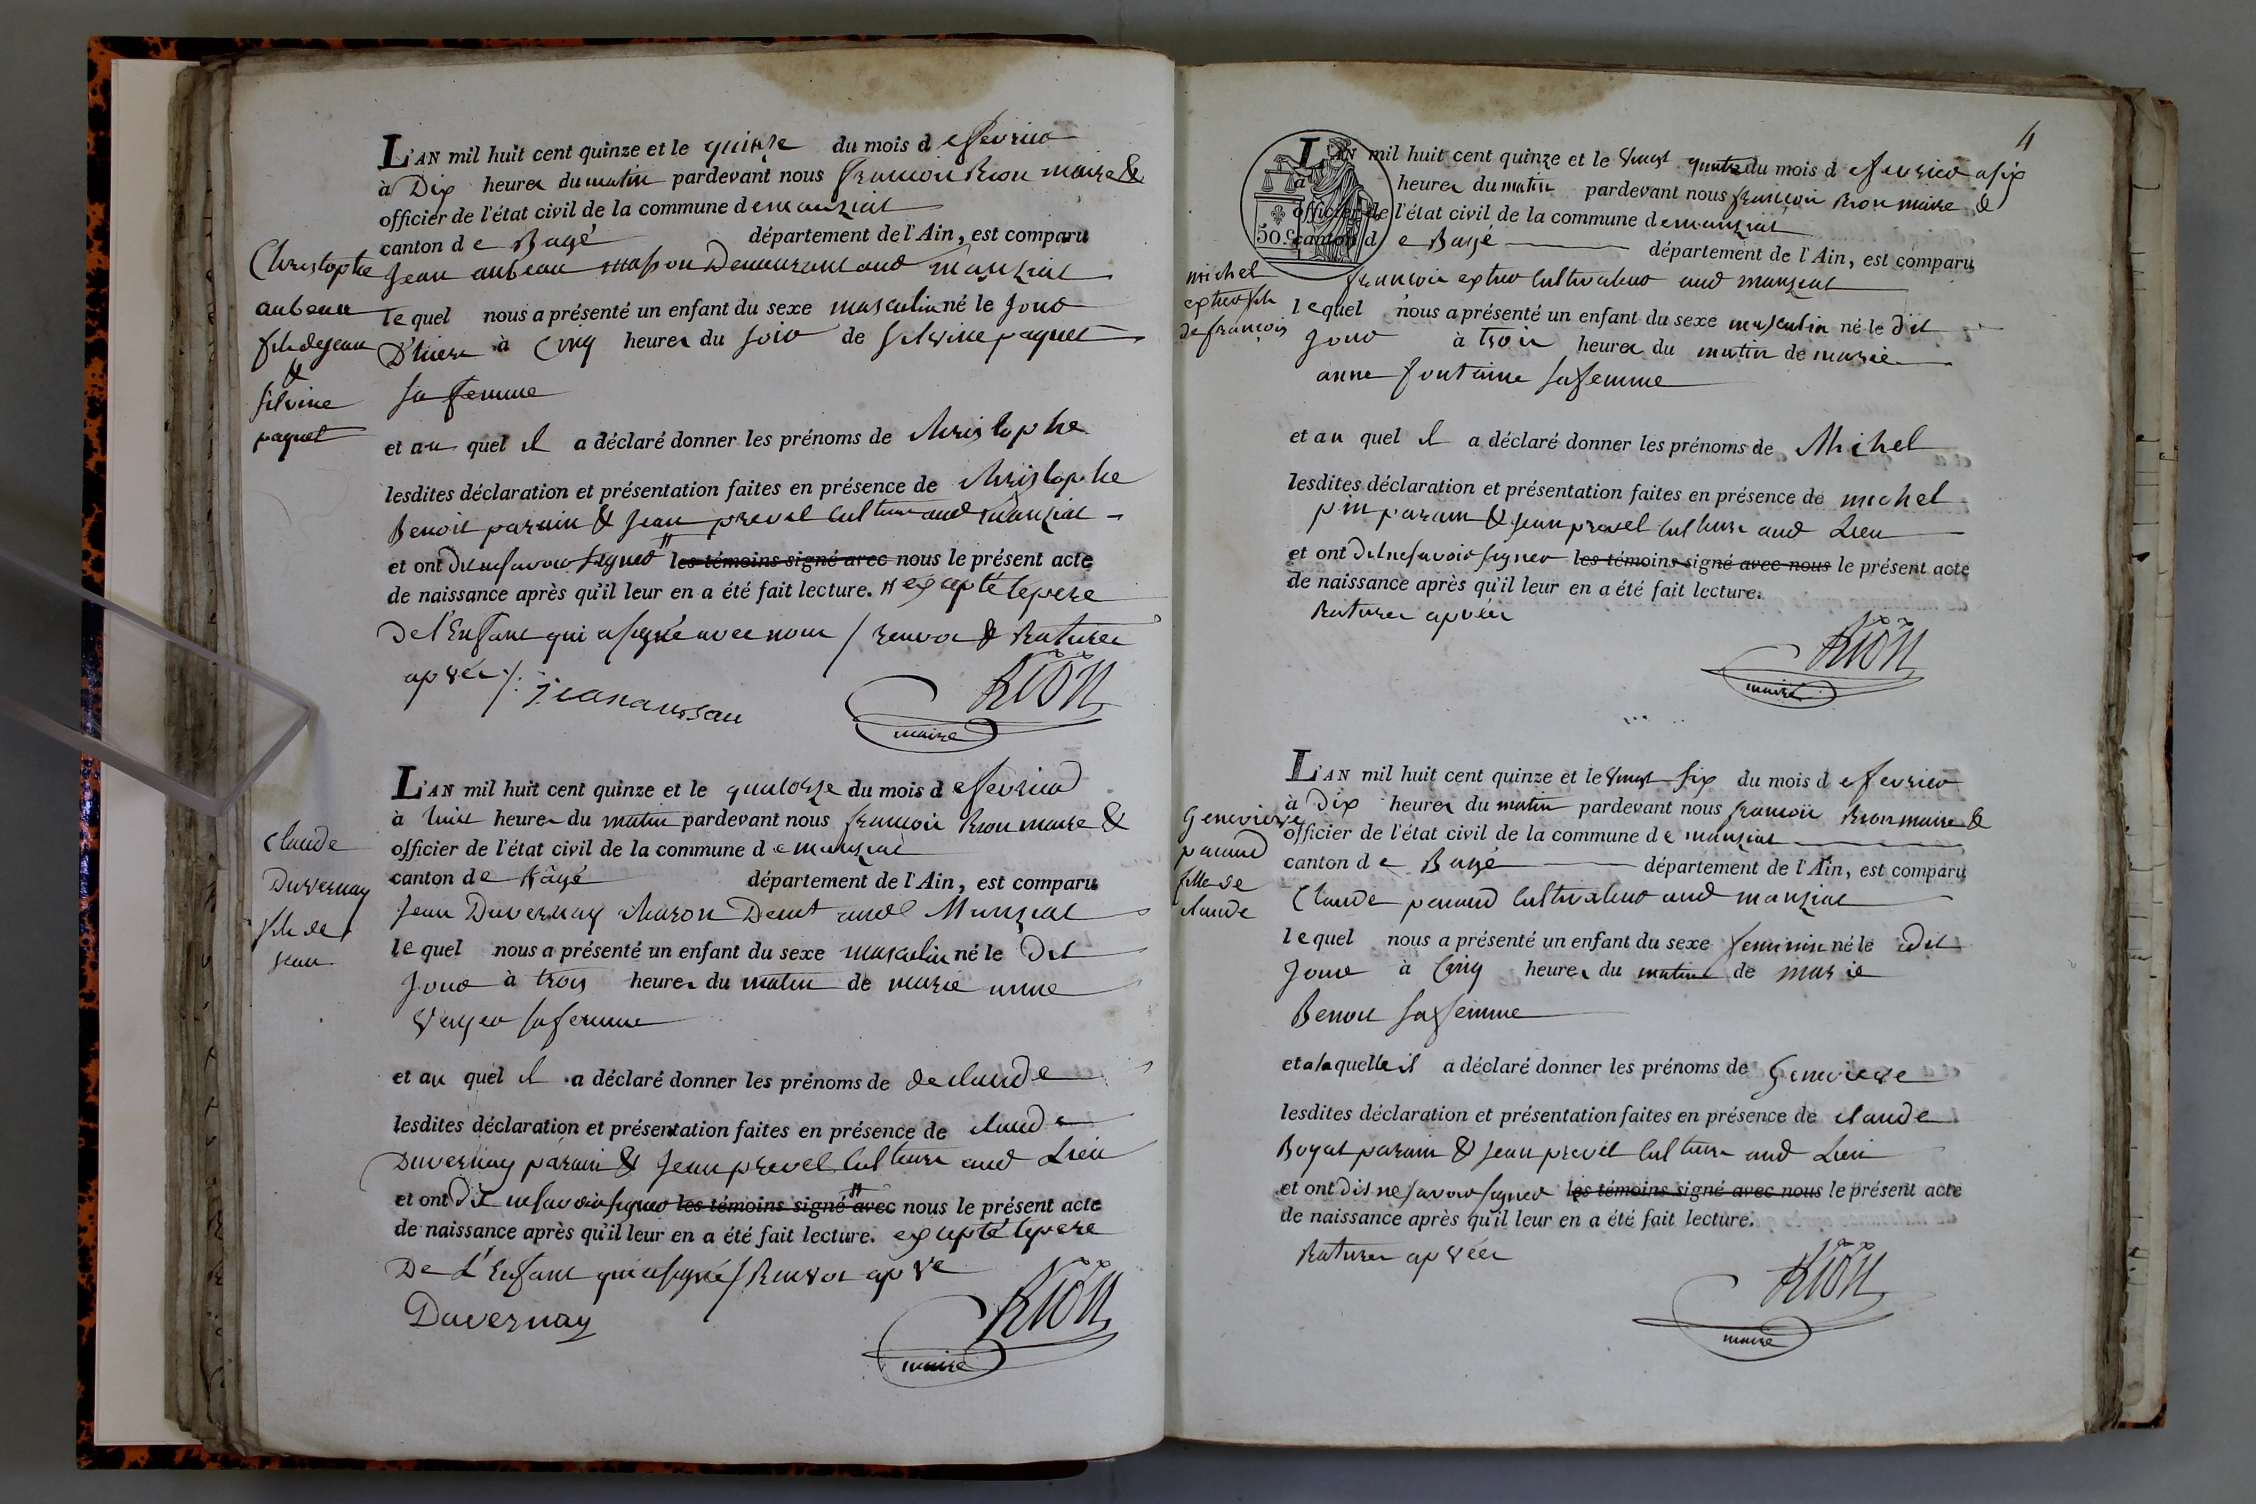 Christophe
aubeau
fils de jean
&
silvine
paquet
L'AN mil huit cent quinze et le quinze du mois de fevrier
à Dix heures du matin pardevant nous françois Rion maire &
officier de l'état civil de la commune de manziat
canton de Bagé département de l'Ain, est comparu
jean aubeau masson Demeurant aud manziat
lequel nous a présenté un enfant du sexe masculin né le jour
D'hiere à Cinq heures du soir de silvine paquet
sa femme
et au quel il a déclaré donner les prénoms de christophe
lesdites déclaration et présentation faites en présence de christophe
Benoit parain & jean prevel culteurs aud manziat
et ont dit ne savoir signer les témoins signé avec nous le présent acte
de naissance après qu'il leur en a été fait lecture. excepté le pere
de l'Enfant qui a signé avec nous / renvoi & Ratures
apvés /. jean aubeau
RION
maire
claude
Duvernay
fils de
jean
L'AN mil huit cent quinze et le quatorze du mois de fevrier
à huit heures du matin pardevant nous françois Rion maire &
officier de l'état civil de la commune de manziat
canton de Bâgé département de l'Ain, est comparu
jean Duvernay charon Demt aud Manziat
lequel nous a présenté un enfant du sexe masculin né le Dit
jour à trois heures du matin de marie anne
Verger sa femme
et au quel il a déclaré donner les prénoms de de claude
lesdites déclaration et présentation faites en présence de claude
Duvernay parain & jean prevel culteurs aud Lieu
et ont dit ne savoir signer les témoins signé avec nous le présent acte
de naissance après qu'il leur en a été fait lecture. excepté le pere
De L'Enfant qui a signé / Renvoi apvé
Duvernay
RION
maire
4
50 c.
michel
extier fils
de françois
L'AN mil huit cent quinze et le vingt quatre du mois de fevrier a six
à heures du matin pardevant nous françois Rion maire &
officier de l'état civil de la commune de manziat
canton de Bagé département de l'Ain, est comparu
françois cultivateur aud manziat
lequel nous a présenté un enfant du sexe masculin né le dit
jour à trois heures du matin de marie
anne fontaine sa femme
et au quel il a déclaré donner les prénoms de Michel
lesdites déclaration et présentation faites en présence de michel
pin parain & jean prevel culteurs aud Lieu
et ont dit ne savoir signer les témoins signé avec nous le présent acte
de naissance après qu'il leur en a été fait lecture.
Ratures apvées
RION
maire
Genevieve
panaud
fille de
claude
L'AN mil huit cent quinze et le vingt six du mois de fevrier
à Dix heures du matin pardevant nous françois Rion maire &
officier de l'état civil de la commune de manziat
canton de Bagé département de l'Ain, est comparu
Claude panaud cultivateur aud manziat
lequel nous a présenté un enfant du sexe feminin né le dit
jour à Cinq heures du matin de marie
Benoit sa femme
et a la quelle il a déclaré donner les prénoms de Genevieve
lesdites déclaration et présentation faites en présence de claude
Boyat parain & jean prevel culteurs aud Lieu
et ont dit ne savoir signer les témoins signé avec nous le présent acte
de naissance après qu'il leur en a été fait lecture.
Ratures apvées
RION
maire